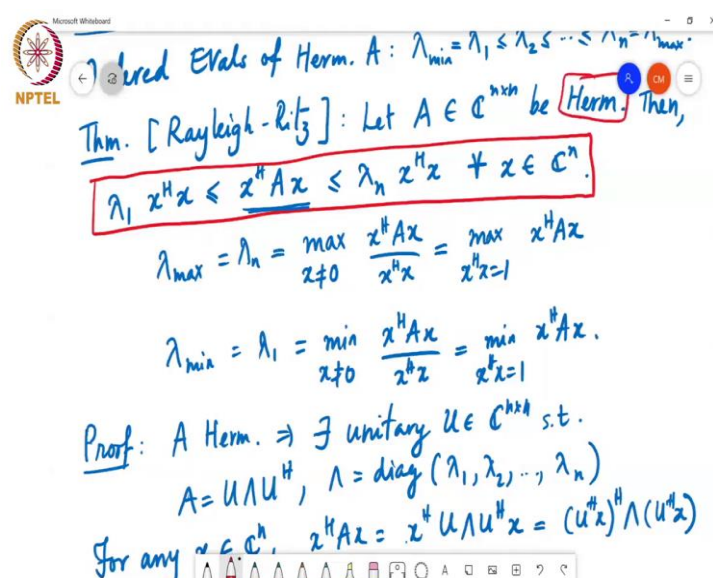 Microsoft Whiteboard
NPTEL
CM
Evals of Herm. A : λ_min = λ_1 ≤ λ_2 ≤ ... ≤ λ_n = λ_max.
Thm. [Rayleigh-Ritz] : Let A ∈ ℂ^{n×n} be Herm. Then,
λ_1 x^H x ≤ x^H A x ≤ λ_n x^H x ∀ x ∈ ℂ^n.
λ_max = λ_n = max_{x≠0} x^H A x / x^H x = max_{x^H x=1} x^H A x
λ_min = λ_1 = min_{x≠0} x^H A x / x^H x = min_{x^H x=1} x^H A x.
Proof : A Herm. ⇒ ∃ unitary U ∈ ℂ^{n×n} s.t.
A = UΛU^H, Λ = diag (λ_1, λ_2, ..., λ_n)
For any x ∈ ℂ^n, x^H A x = x^H UΛU^H x = (U^H x)^H Λ(U^H x)